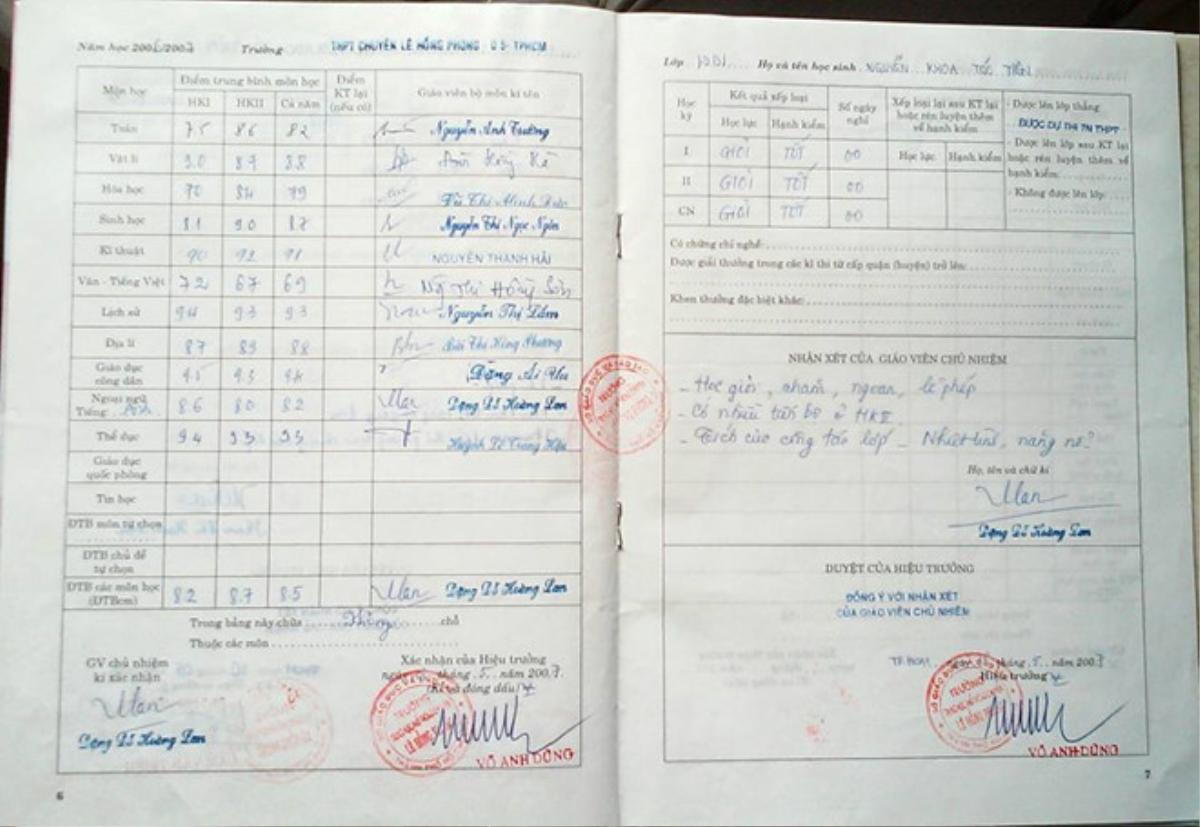 Năm học 2006/2007 Trường THPT CHUYÊN LÊ HỒNG PHONG Q5- TPHCM
Môn học Điểm trung bình môn học Điểm KT lại (nếu có) Giáo viên bộ môn kí tên
HKI HKII Cả năm
Toán 75 86 82 Nguyễn Anh Trường
Vật lí 90 87 88
Hóa học 70 84 79 Vũ Thị Minh Đức
Sinh học 81 90 87 Nguyễn Thị Ngọc Ngôn
Kĩ thuật 90 92 91 NGUYỄN THANH HẢI
Văn - Tiếng Việt 72 67 69 Ng Thị Hồng Sơn
Lịch sử 94 93 93 Nguyễn Thị Lắm
Địa lí 87 89 88 Bùi Thị Hồng Phương
Giáo dục công dân 95 93 94 Đặng Ái Vu
Ngoại ngữ Tiếng: Anh 86 80 82 Đặng Đỗ Hoàng Lan
Thể dục 94 93 93 Huỳnh Lê Trung Hậu
Giáo dục quốc phòng
Tin học
ĐTB môn tự chọn
ĐTB chủ đề tự chọn
ĐTB các môn học (ĐTBcm) 82 8.7 8.5 Đặng Đỗ Hoàng Lan
Trong bảng này chữa Không chỗ
Thuộc các môn
GV chủ nhiệm kí xác nhận
Đặng Đỗ Hoàng Lan
Xác nhận của Hiệu trưởng
ngày tháng 5 năm 2007
(Kí và đóng dấu)
VÕ ANH DŨNG
6
Lớp Họ và tên học sinh NGUYỄN KHOA TÓC TIÊN
Học kỳ Kết quả xếp loại Số ngày nghỉ Xếp loại lại sau KT lại hoặc rèn luyện thêm về hạnh kiểm
Học lực Hạnh kiểm Học lực Hạnh kiểm
I GIỎI TỐT 00
II GIỎI TỐT 00
CN GIỎI TỐT 00
- Được lên lớp thẳng
ĐƯỢC DỰ THI TN THPT
- Được lên lớp sau KT lại
hoặc rèn luyện thêm về
hạnh kiểm:
- Không được lên lớp:
Có chứng chỉ nghề:
Được giải thưởng trong các kì thi từ cấp quận (huyện) trở lên:
Khen thưởng đặc biệt khác:
NHẬN XÉT CỦA GIÁO VIÊN CHỦ NHIỆM
- Học giỏi, ngoan, lễ phép
- Có nhiều tiến bộ ở HKII
- Tích cực công tác lớp - Nhiệt tình, năng nổ
Họ, tên và chữ kí
Đặng Đỗ Hoàng Lan
DUYỆT CỦA HIỆU TRƯỞNG
ĐỒNG Ý VỚI NHẬN XÉT
CỦA GIÁO VIÊN CHỦ NHIỆM
TP.HCM, ngày tháng 5 năm 2007
Hiệu trưởng
VÕ ANH DŨNG
7